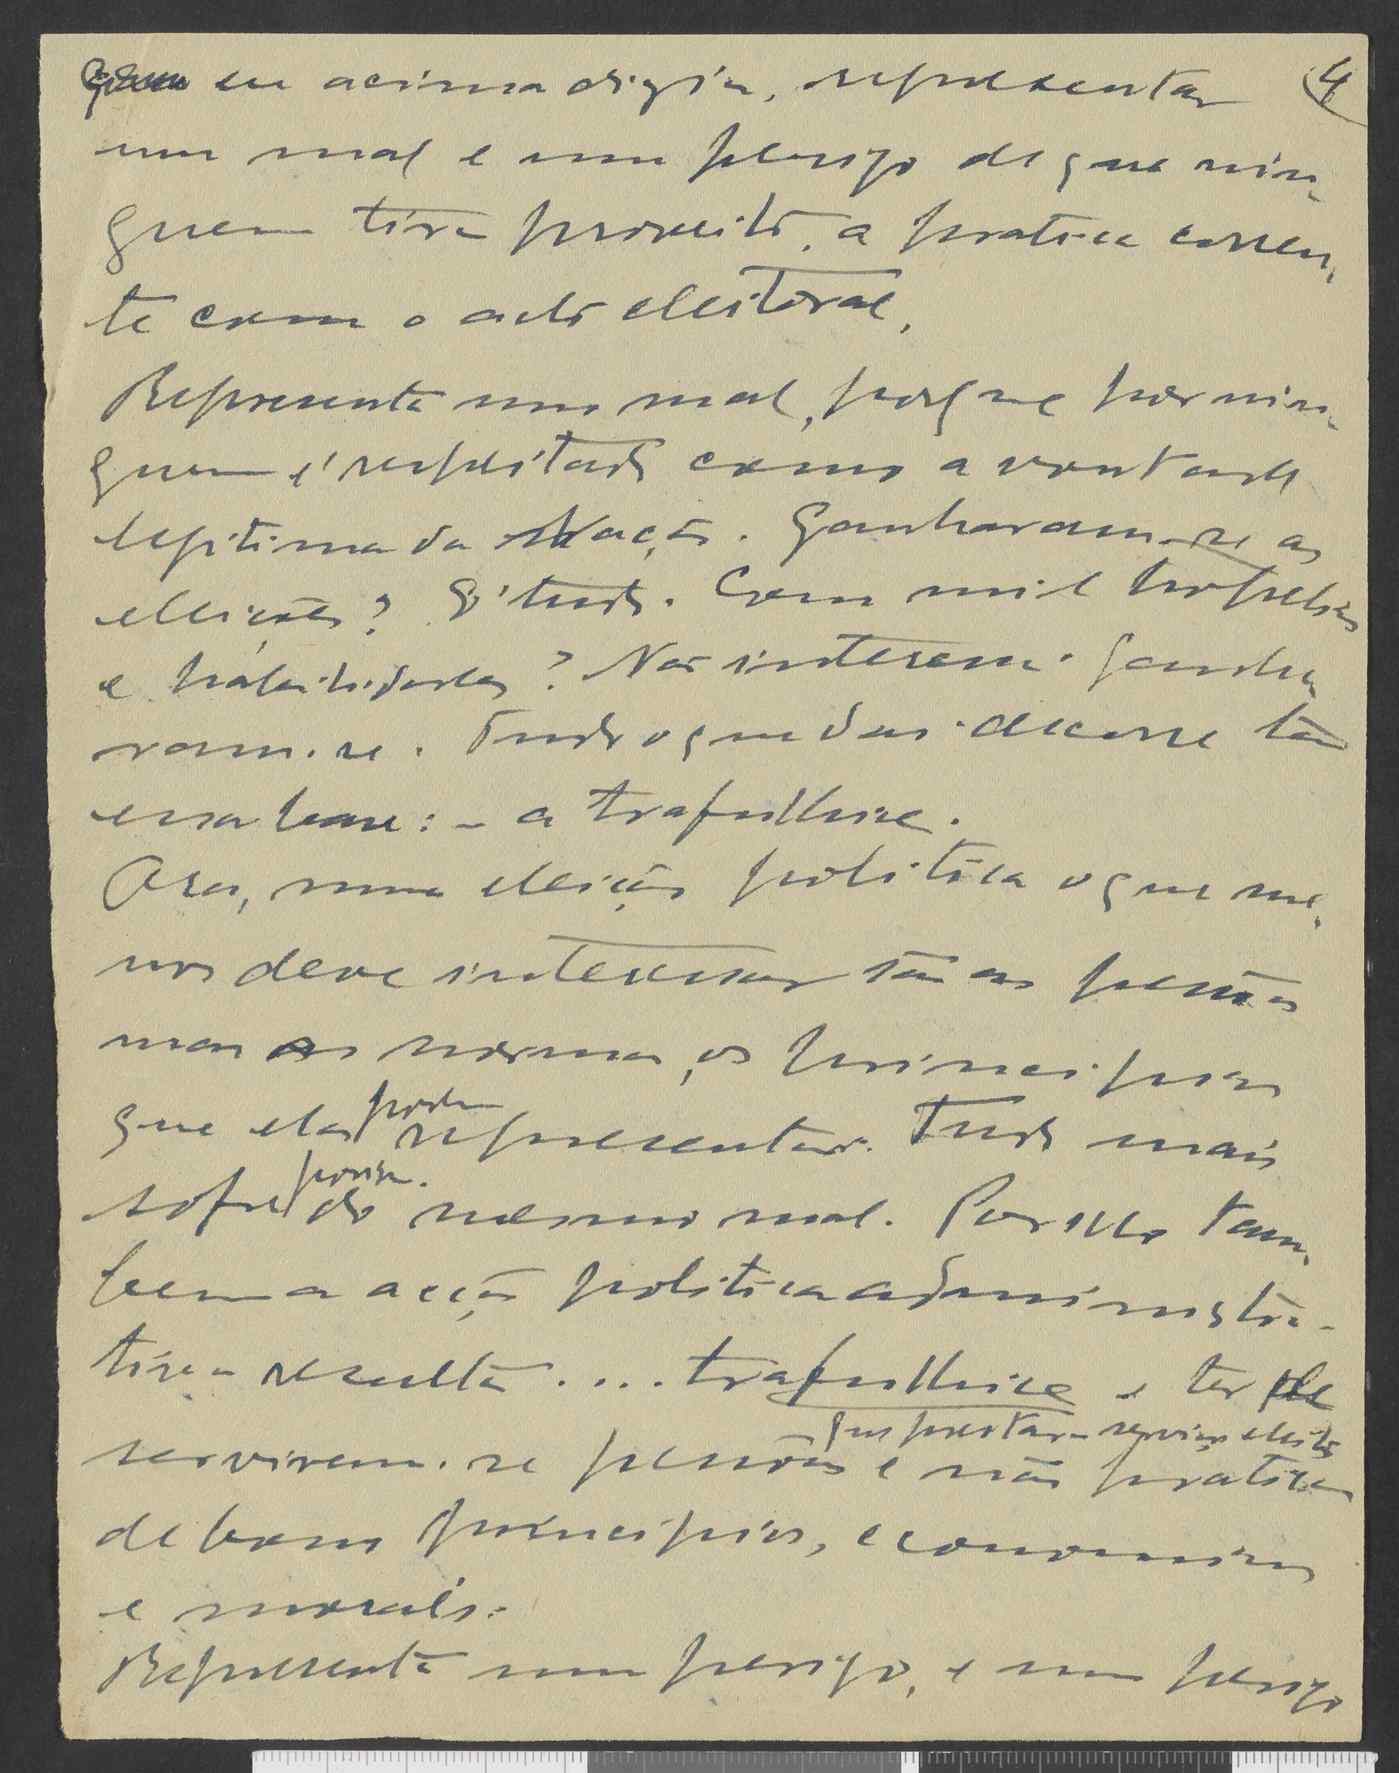 que eu acima dizia, representar 4
um mal e um perigo de que nin-
guem tira proveito, a pratica corren-
te com o acto eleitoral.
Representa um mal, porque por nin-
guem é respeitado como a vontade
legitima da Nação. Ganharam-se as
eleições? É tudo. Com mil tropelias
e habilidades? Não interessa. Ganha-
ram-se. Tudo o que dai decorre tem
essa base: - a trafulhice.
Ora, numa eleição politica o que me-
nos deve interessar são as pessoas
mas as normas, os principios
que elas podem representar. Tudo mais
sofre porisso do mesmo mal. Por isso tam-
bem a acção politica administra-
tiva resulta .... trafulhice e ter de
que prestaram serviços eleito
servirem-se pessoas e não praticas
de bons principios, economicos
e morais.
Representa um perigo, e um perigo